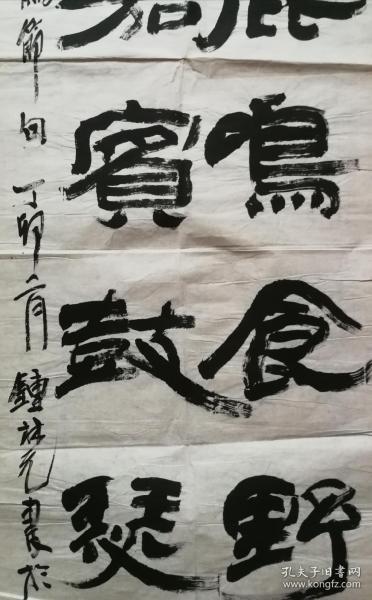 鹿鳴食野
嘉賓鼓瑟
節句 丁卯六月 鍾林元書於
孔夫子旧书网
www.kongfz.com